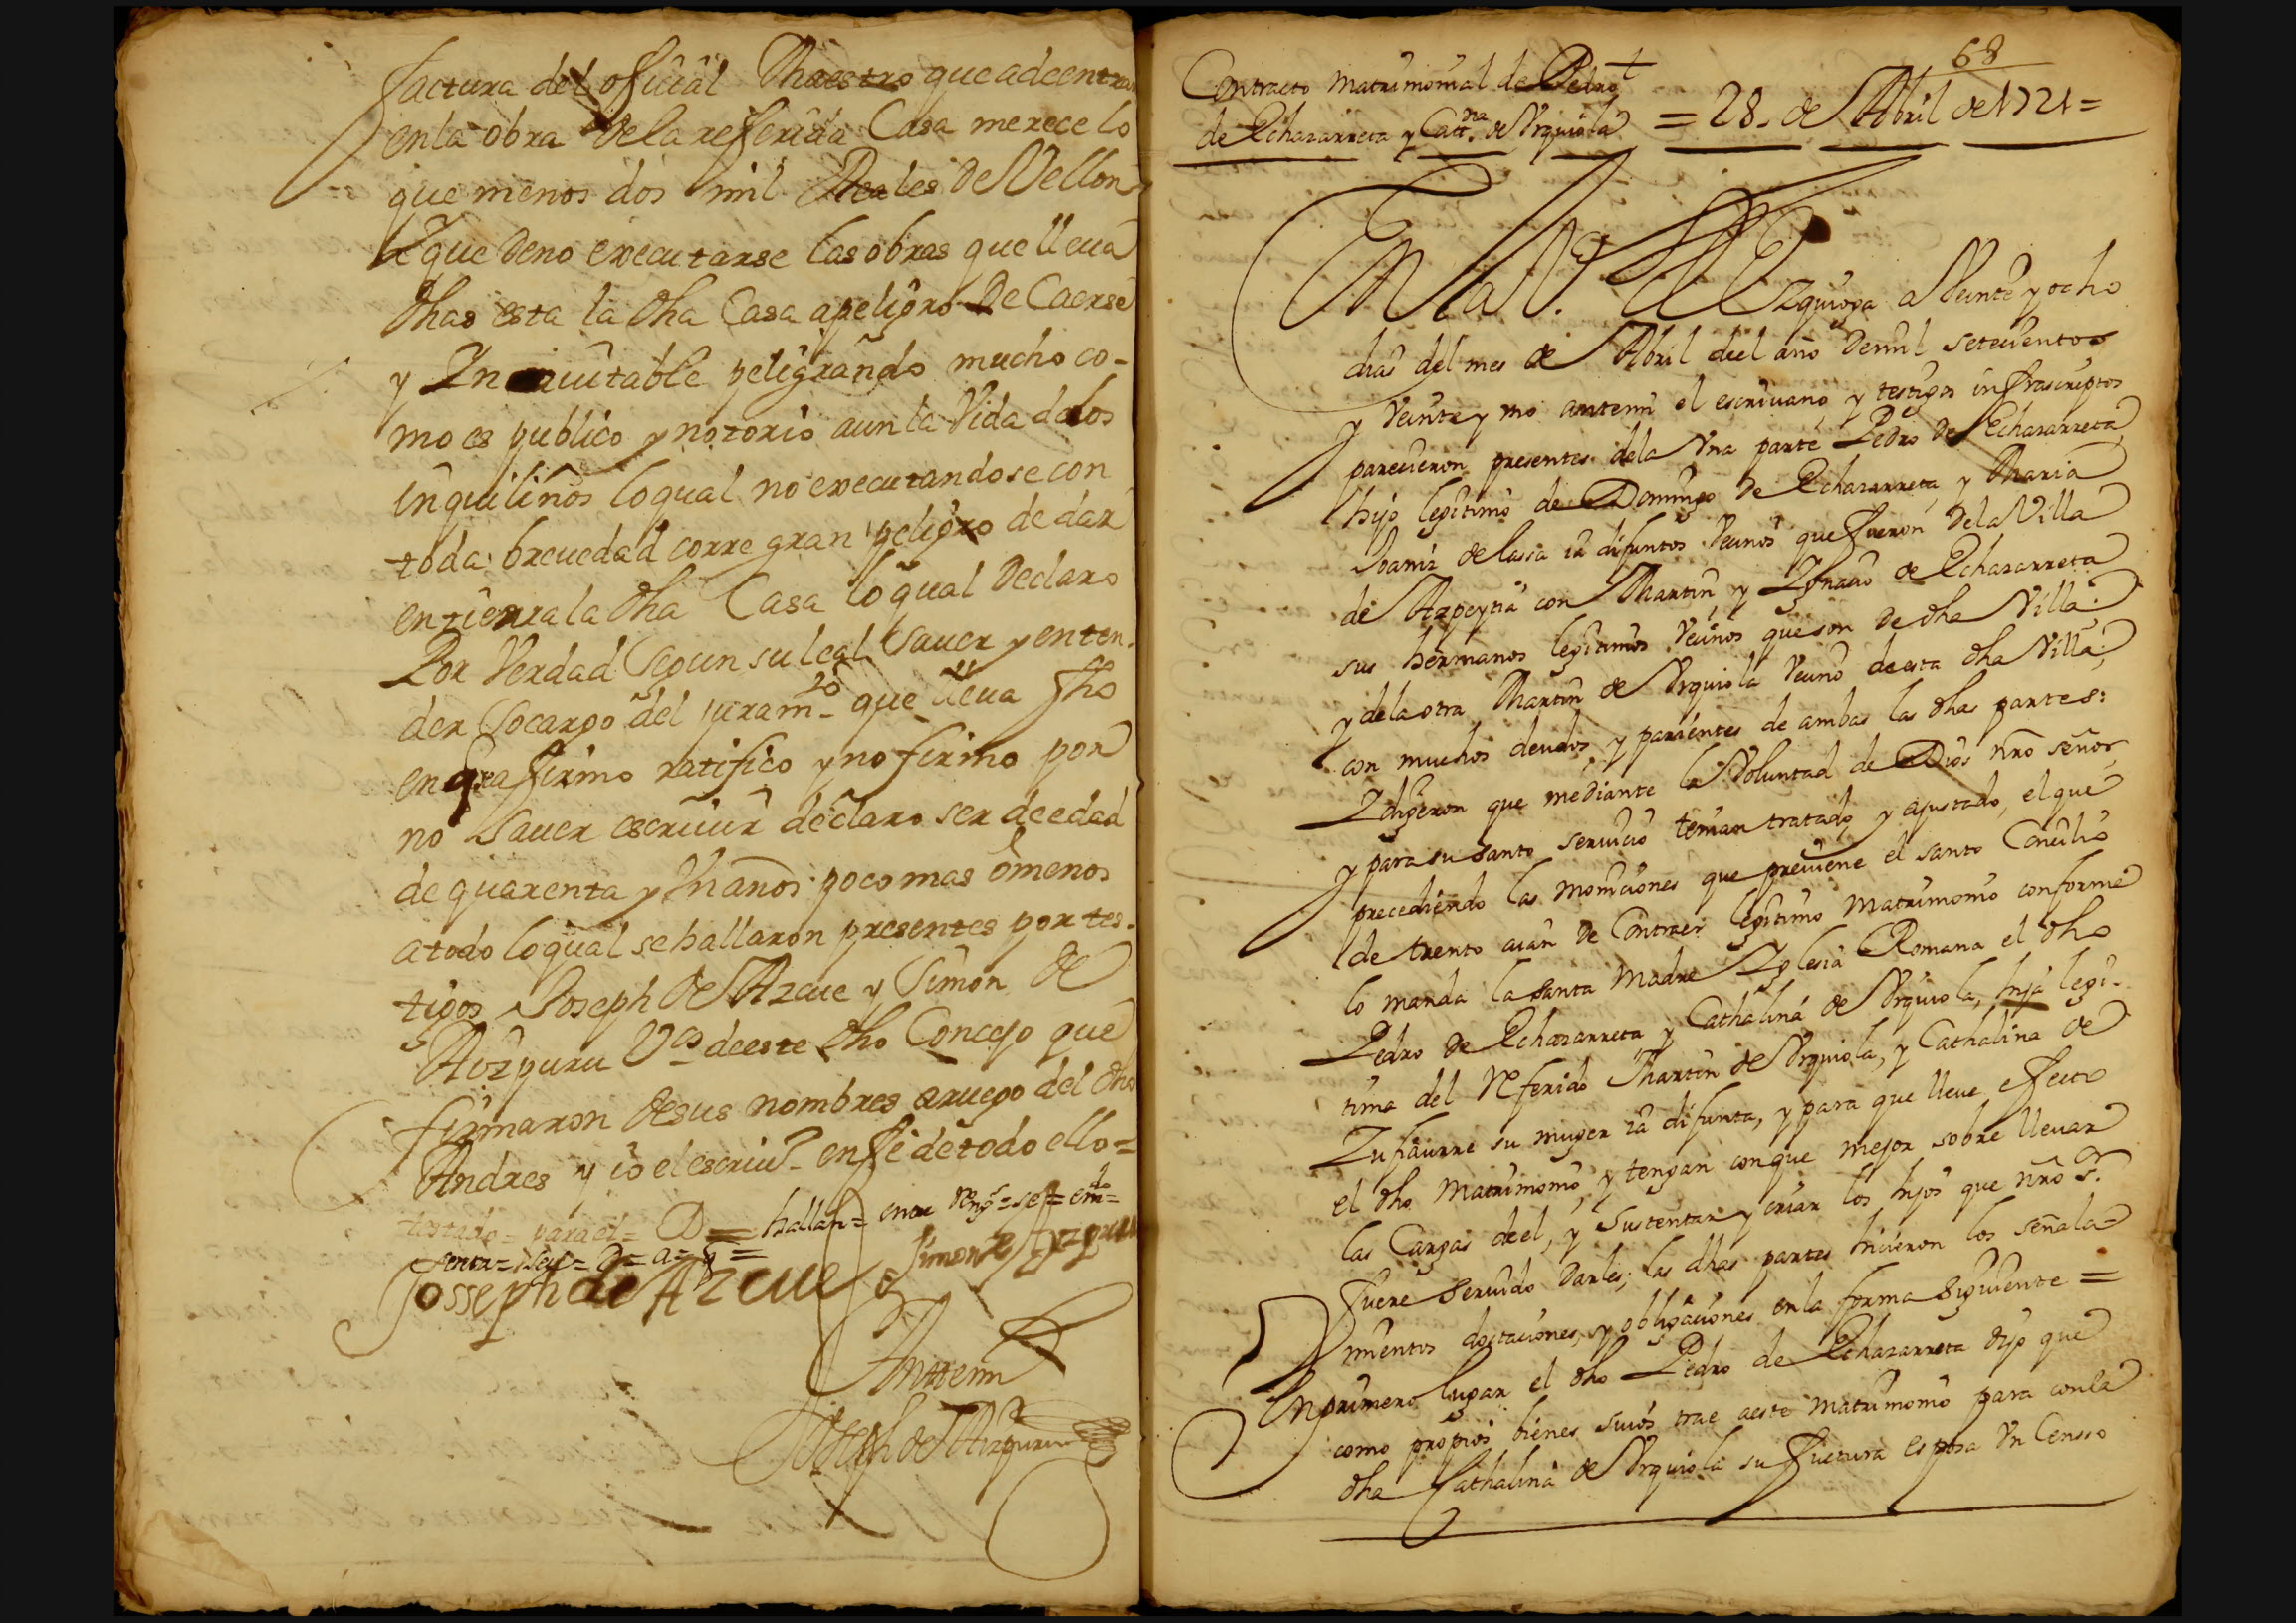 factura del oficial Maestro que a de entrar
en la obra de la refferida Casa merece lo
que menos dos mil Reales de Vellon
Y que de no executarse las obras que lleua
dhas esta la dha Casa a peligro de Caerse
y peligrando mucho co-
mo es publico y notorio aun la Vida de los
inquilinos lo qual no executandose con
toda breuedad corre gran peligro de dar
en tierra la dha Casa lo qual Declaro
Por Verdad Segun su leal Sauer y enten-
der So cargo del juramto que lleua fho
en q̃ se affirmo ratifico y no firmo por
no Sauer escriuir declaro ser de edad
de quarenta y Vn años poco mas o menos
a todo lo qual se hallaron presentes por tes-
tigos Joseph de Azcue y Simon de
Aizpuru Vos de este dho Concejo que
firmaron de sus nombres a ruego del dho
Andres y io el escriuo en fe de todo ello=
testado= para el= D= hallan= entre Reng.s= se= emdo=
Josseph de Azcue Simon de Aizpuru
Anttemi
Joseph de Aizpuru
68
Contracto Matrimonial de Pedro
de Echazarreta y Cattna de Vrquiola = 28. de Abril de 1721=
En la V.a de Azquioga a Veinte y ocho
dias del mes de Abril del año de mil setecientos
y Veinte y vno antemi el escriuano y testigos infrascriptos
parecieron presentes de la Vna parte Pedro de Echazarreta
hijo legitimo de Domingo de Echazarreta y Maria
de Lassa ia difuntos Vecinos que fueron de la Villa
de Azpeytia con Martin y Ignacio de Echazarreta
sus hermanos legitimos Vecinos que son de dha Villa:
y de la otra Martin de Vrquiola Vecino de esta dha Villa;
con muchos deudos, y parientes de ambas las dhas partes:
Y dijeron que mediante la Voluntad de Dios nro señor,
y para su santo seruicio tenian tratado y ajustado, el que
precediendo las moniciones que preuiene el santo Concilio
de trento aian de Contraer legitimo Matrimonio conforme
lo manda la santa Madre Yglesia Romana el dho
Pedro de Echazarreta y Cathalina de Vrquiola, hija legi-
tima del Referido Martin de Vrquiola, y Cathalina de
Zufiaurre su muger ia difunta, y para que lleue efecto
el dho Matrimonio, y tengan con que mejor sobre lleuar
las Cargas de el, y Sustentar y criar los hijos que nro Sr.
fuere Seruido Darles; las dhas partes hicieron los señala-
mientos dotaciones, y obligaciones en la forma Siguiente =
En primero lugar el dho Pedro de Echazarreta dijo que
como propios bienes suios trae a este matrimonio para con la
dha Cathalina de Vrquiola su fuctura esposa Vn Censso